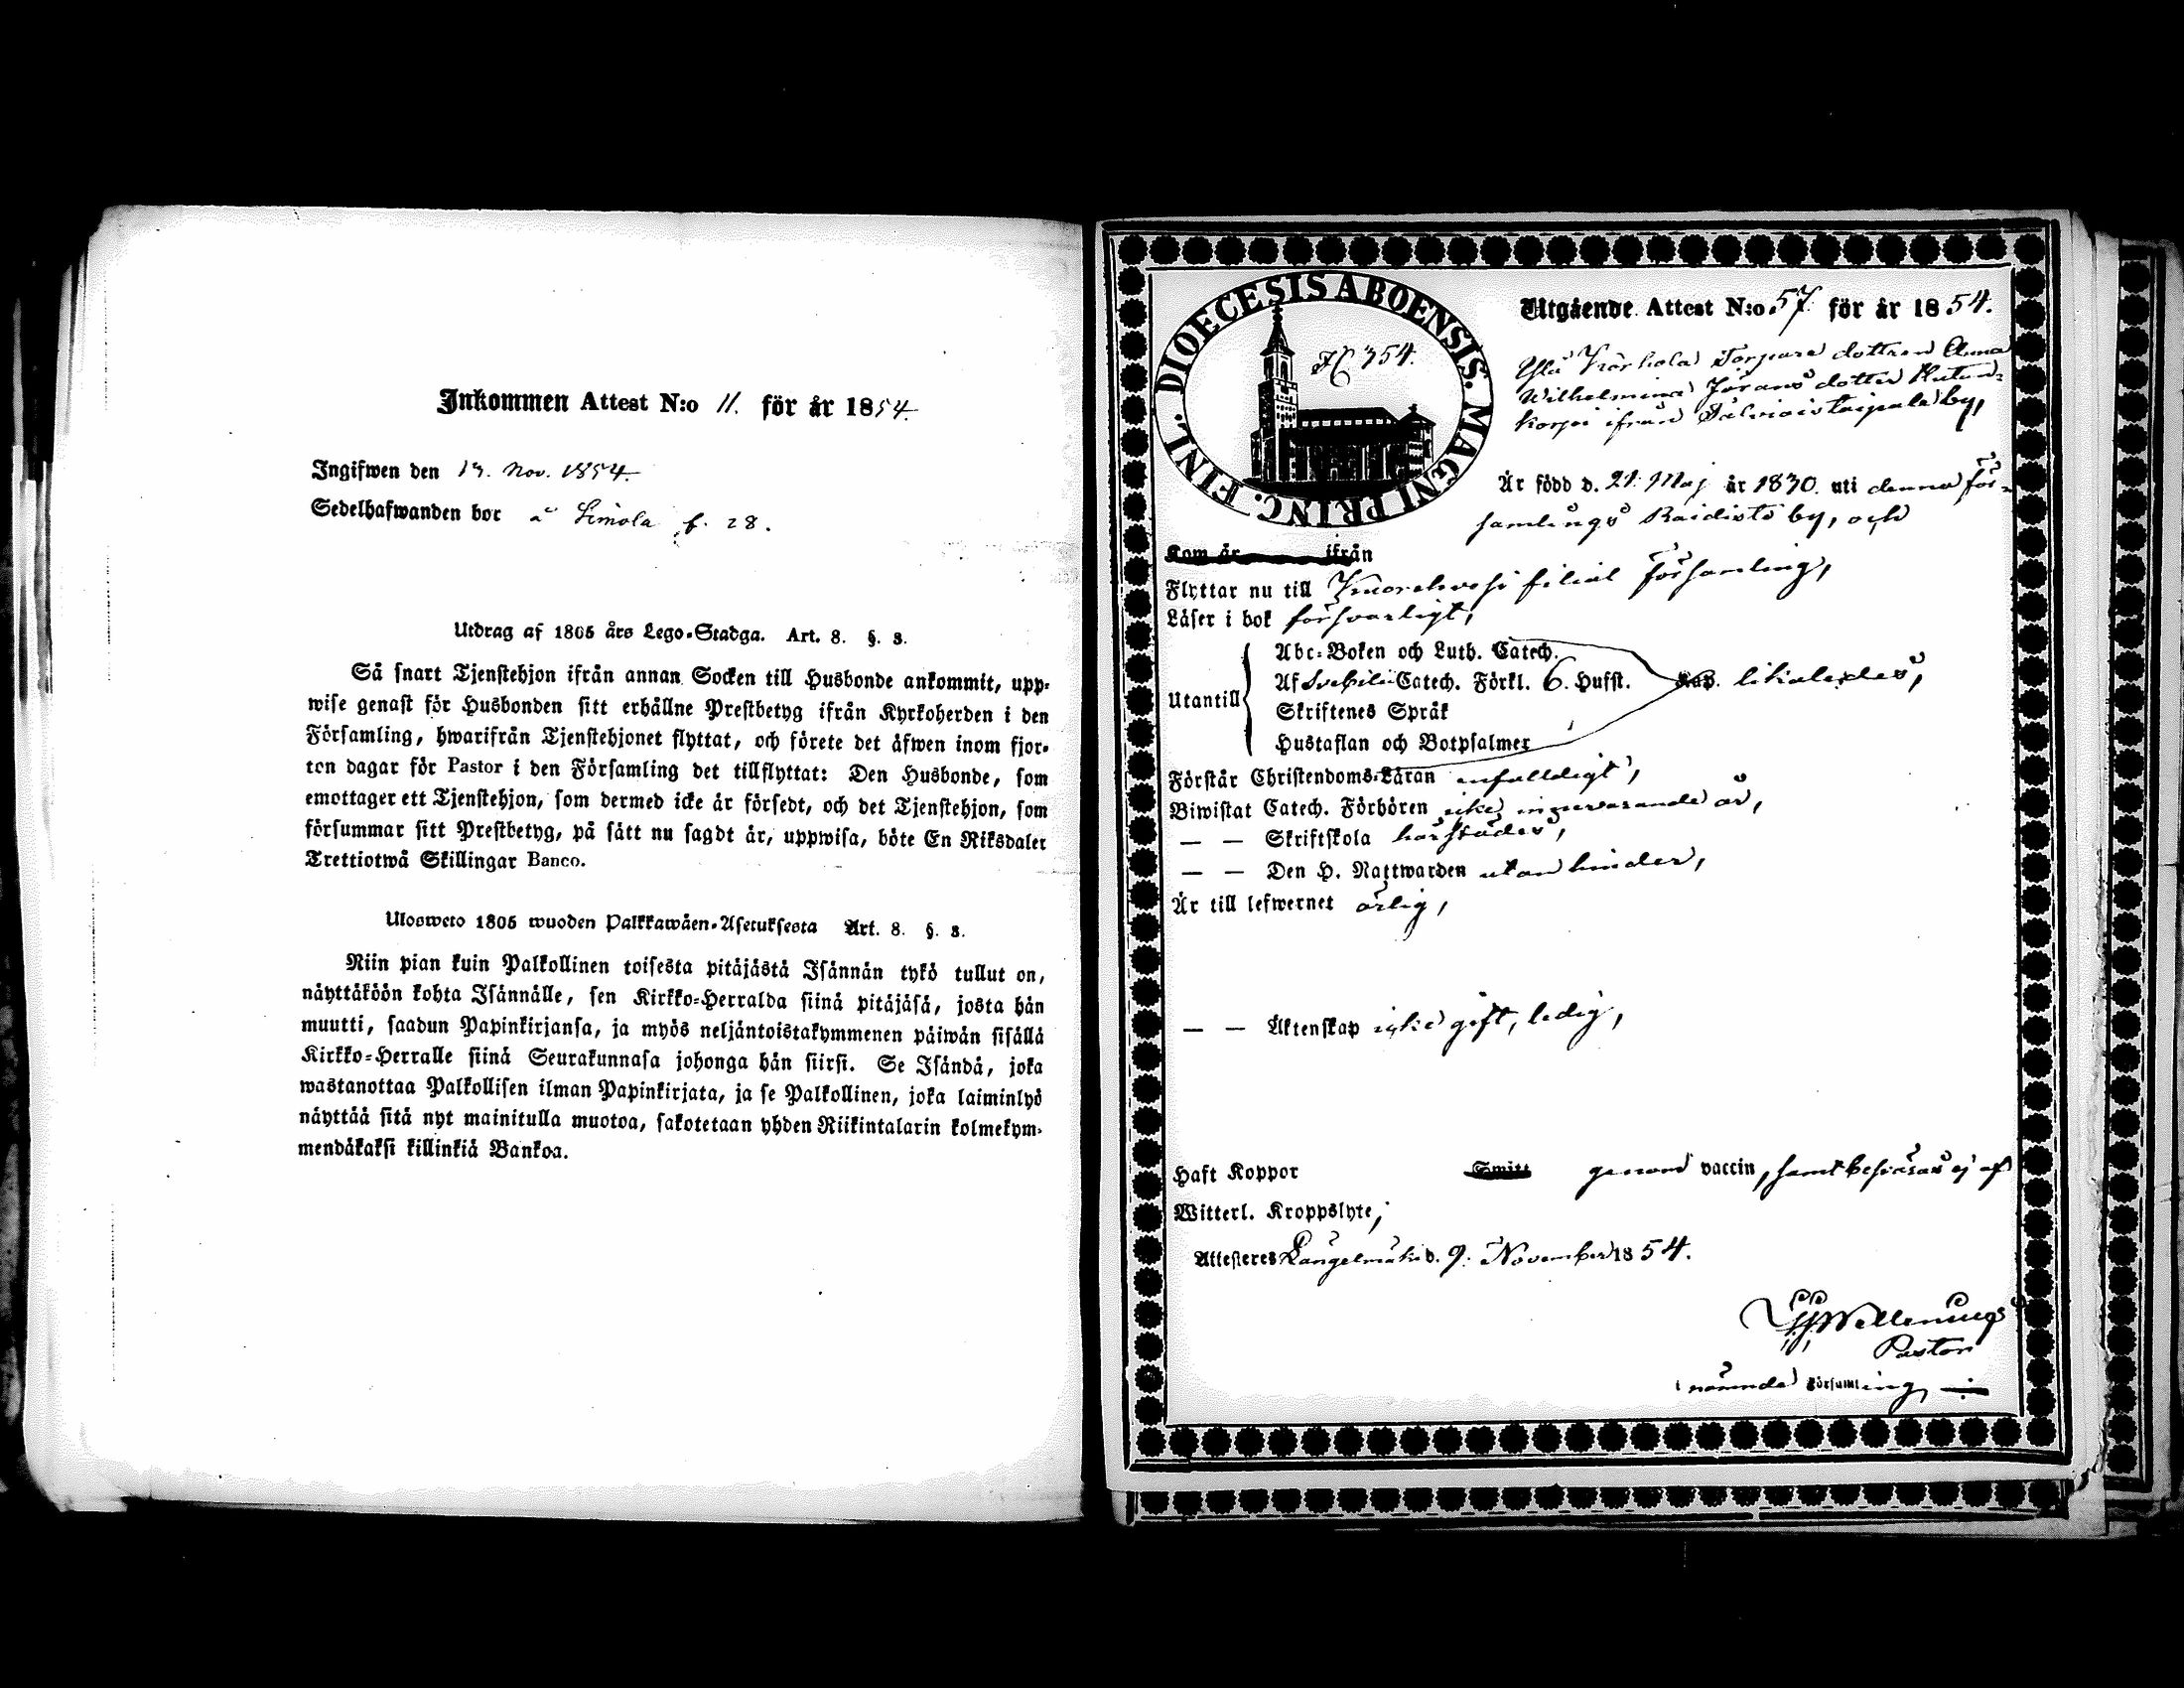 Inkommen Attest N:o 11. för år 1854.
Ingifwen den 13. Nov. 1854.
Sedelhafwanden bor å Simola f. 28.
Utdrag af 1805 års Lego-Stadga. Art. 8. §. 3.
Så snart Tjenstehjon ifrån annan Socken till Husbonde ankommit, upp-
wise genast för Husbonden sitt erhållne Prestbetyg ifrån Kyrkoherden i den
Församling, hwarifrån Tjenstehjonet flyttat, och förete det äfwen inom fjor-
ton dagar för Pastor i den Församling det tillflyttat: Den Husbonde, som
emottager ett Tjenstehjon, som dermed icke är försedt, och det Tjenstehjon, som
försummar sitt Prestbetyg, på sätt nu sagdt är, uppwisa, böte En Riksdaler
Trettiotwå Skillingar Banco.
Ulosweto 1805 wuoden Palkkawäen-Asetuksesta Art. 8. §. 3.
Niin pian kuin Palkollinen toisesta pitäjästä Isännän tykö tullut on,
näyttäköön kohta Isännälle, sen Kirkko-Herralda siinä pitäjäsä, josta hän
muutti, saadun Papinkirjansa, ja myös neljäntoistakymmenen päiwän sisällä
Kirkko-Herralle siinä Seurakunnasa johonga hän siirsi. Se Isändä, joka
wastanottaa Palkollisen ilman Papinkirjata, ja se Palkollinen, joka laiminlyö
näyttää sitä nyt mainitulla muotoa, sakotetaan yhden Riikintalarin kolmekym-
mendäkaksi killinkiä Bankoa.
DIOECESIS ABOENSIS. MAGNI PRINC. FINL.
354.
Utgående Attest N:o 57. för år 1854.
Torpare dottren Anna
Wilhelmina Jörans dotter
korpi ifrån taipale by,
Är född d. 21. Maj år 1830. uti denna för-
samlings Raidisto by, och
Kom år ifrån
Flyttar nu till Kuorehvesi filial församling,
Läser i bok försvarligt,
Utantill
Abc-Boken och Luth. Catech.
Af Svebilii Catech. Förkl. 6. Hufst. likaledes,
Skriftenes Språk
Hustaflan och Botpsalmer
Förstår Christendoms-Läran enfaldigt,
Biwistat Catech. Förhören icke innevarande år,
— — Skriftskola härstädes,
— — Den H. Nattwarden utan hinder,
Är till lefwernet ärlig,
— — Äktenskap icke gift, ledig,
Haft Koppor Smitt genom vaccin, samt besväras ej af
Witterl. Kroppslyte;
Attesteres Längelmäki d. 9. November 1854.
Pastor
i nämnde Församling